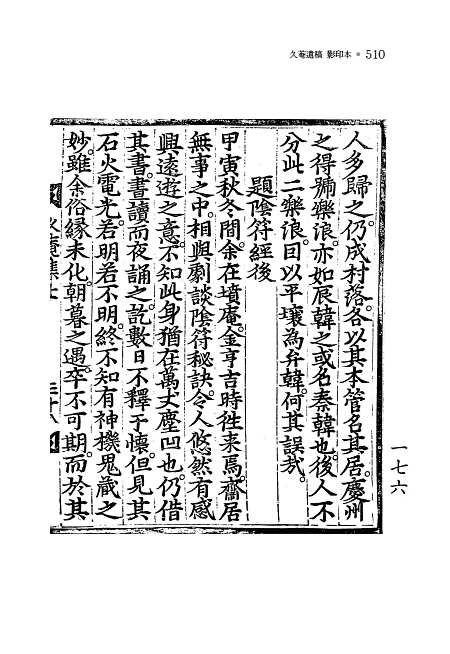 久菴遺稿 影印本 ● 510
人多歸之。仍成村落。各以其本管名其居。慶州
之得號樂浪。亦如辰韓之或名秦韓也。後人不
分此二樂浪。曰以平壤為弁韓。何其誤哉。
題陰符經後
甲寅秋冬間。余在墳庵。金亨吉時徃来焉。齋居
無事之中。相與劇談陰符秘訣。令人悠然有感
興遠遊之意。不知此身猶在萬丈塵凹也。仍借
其書。書讀而夜誦之。訖數日不釋于懷。但見其
石火電光。若明若不明。終不知有神機鬼蔵之
妙。雖余俗緣未化。朝暮之遇。卒不可期。而於其
一七六